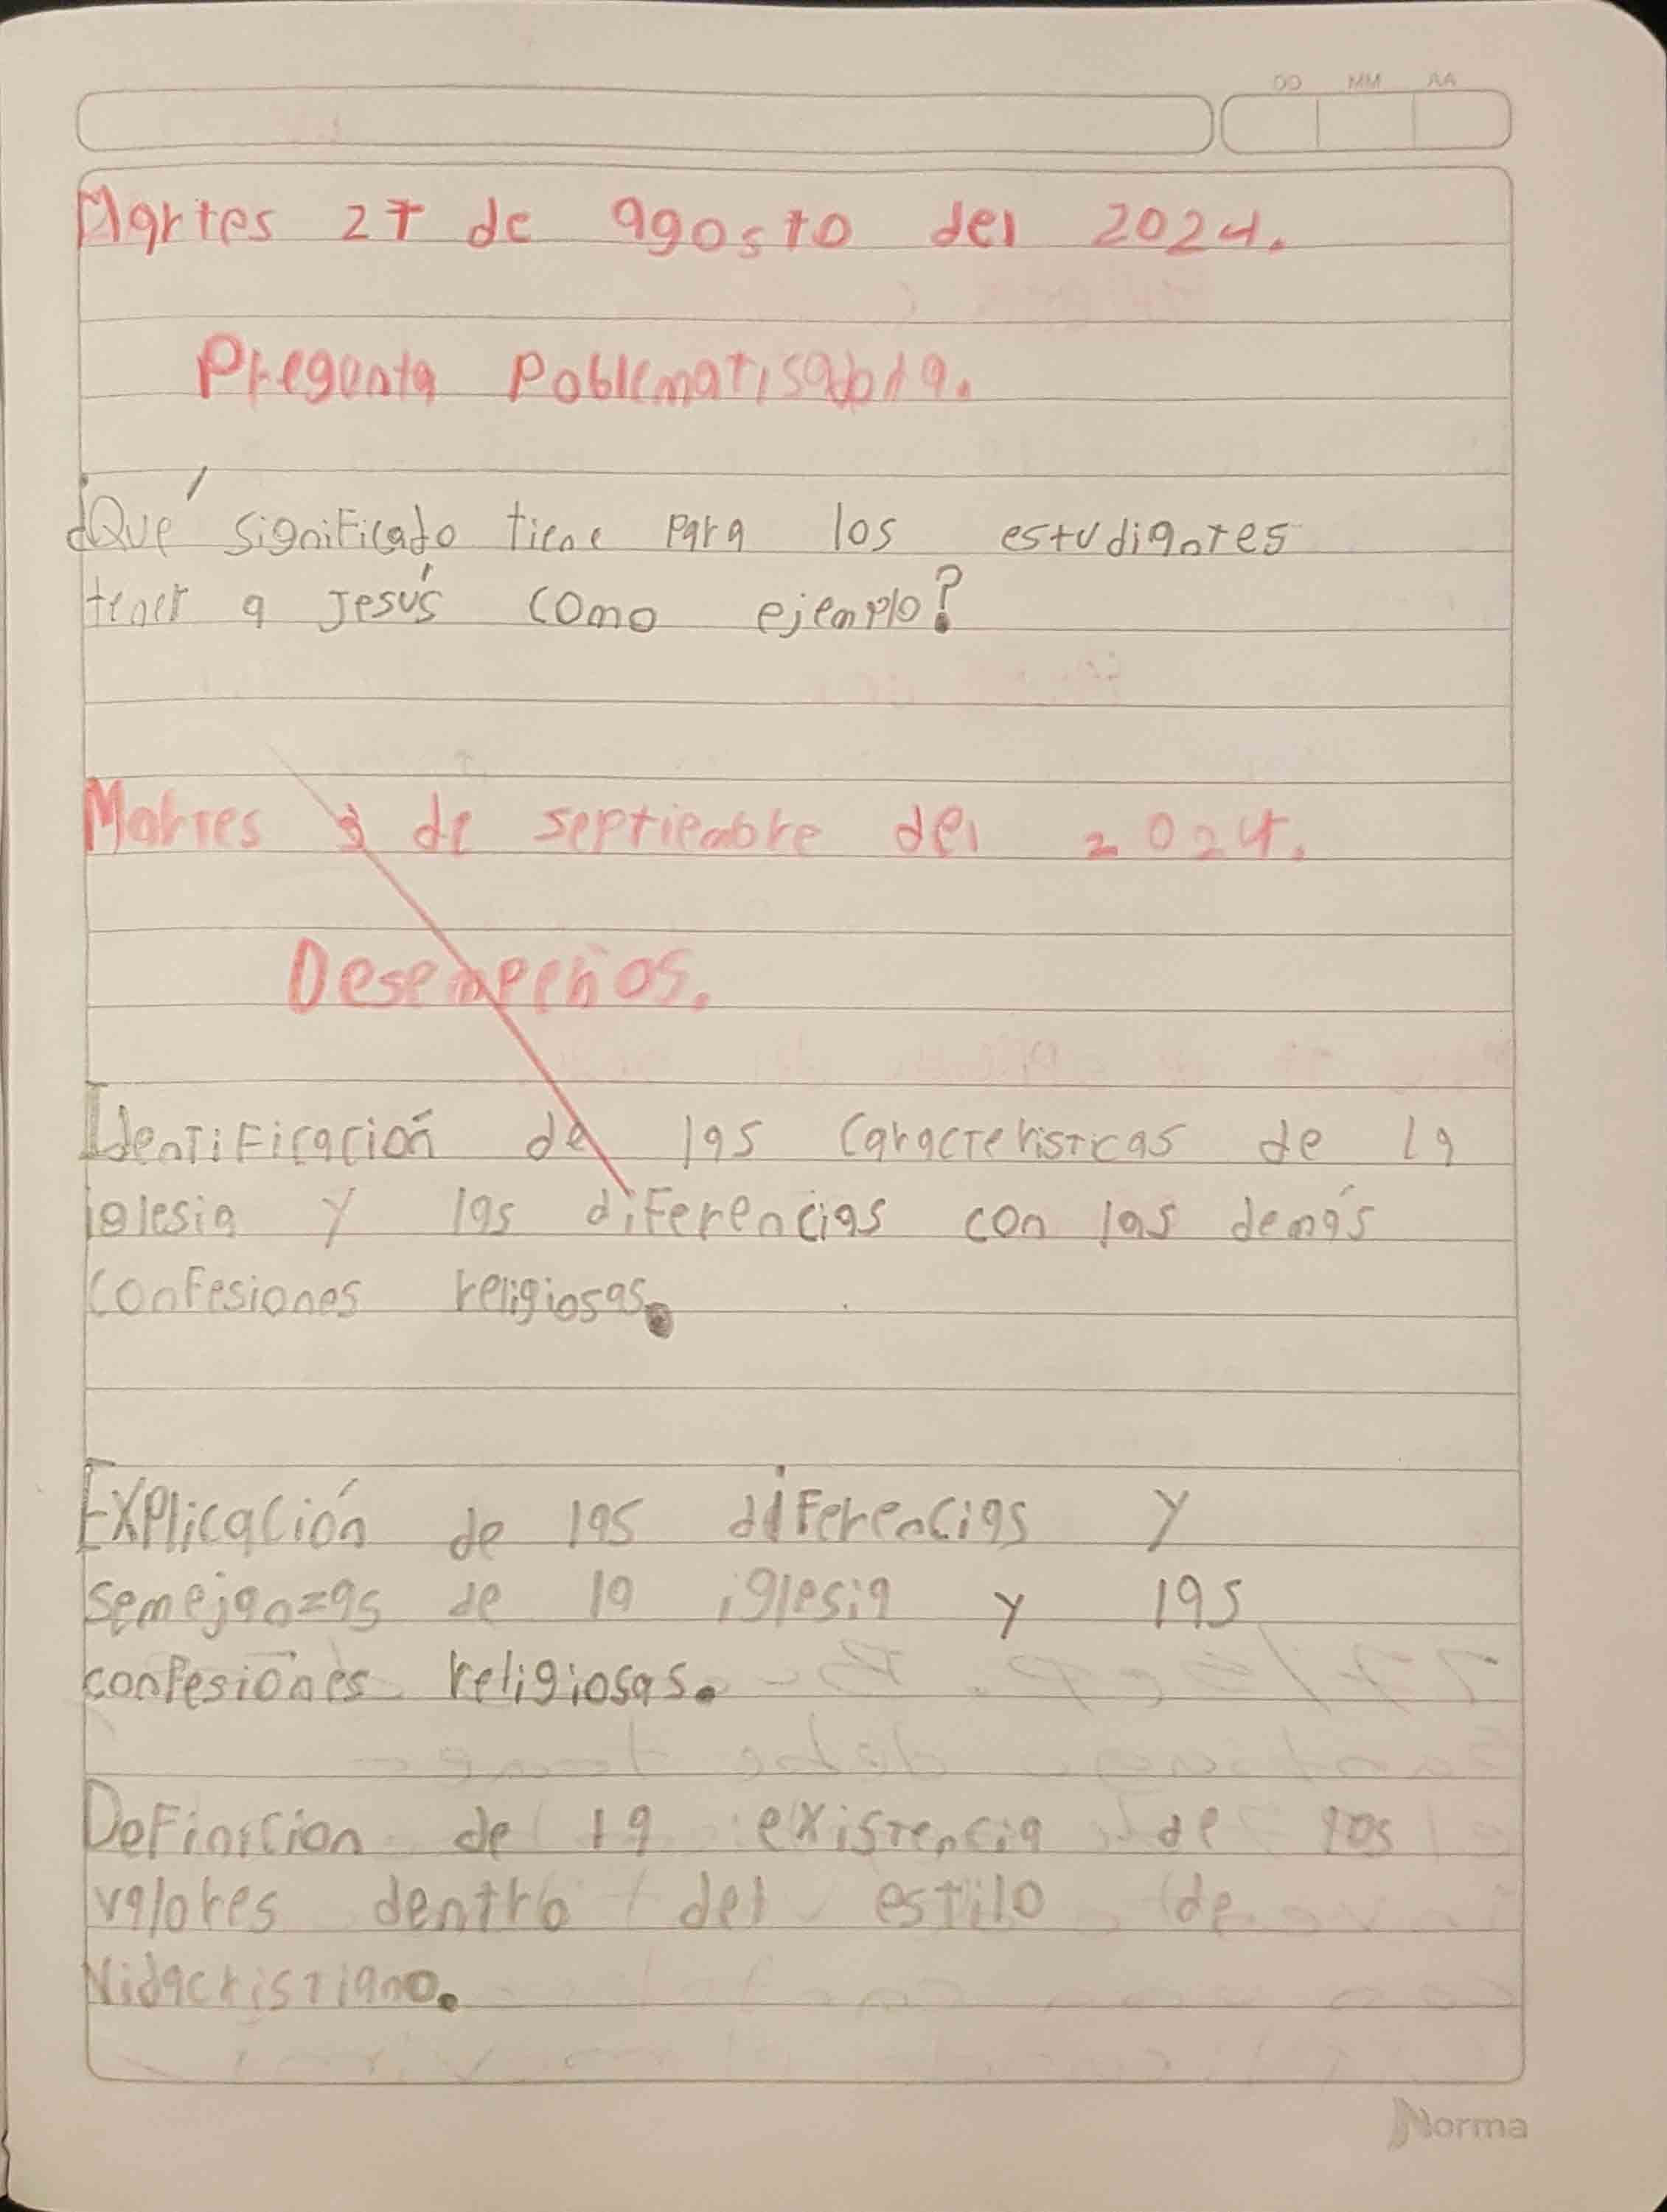 DD MM AA
Martes 27 de agosto del 2024.
Pregunta Poblematisadora.
¿Qué significado tiene para los estudiantes
tener a Jesús como ejemplo?
Martes 3 de septiembre del 2024.
Desempeños.
Identificación de las características de la
iglesia y las diferencias con las demás
confesiones religiosas.
Explicación de las diferencias y
semejanzas de la iglesia y las
confesiones religiosas.
Definicion de la existencia de los
valores dentro del estilo de
vidacristiano.
Norma